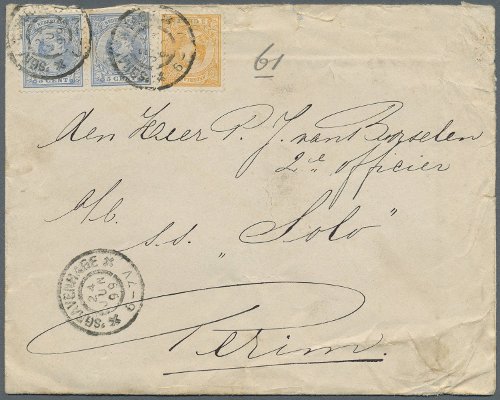 61
den Heer P. J. van Borselen
2de officier
a/b.
s.s. "Solo"
Perim.
5 CENT
'SGRAVENHAGE
24
JUN
99